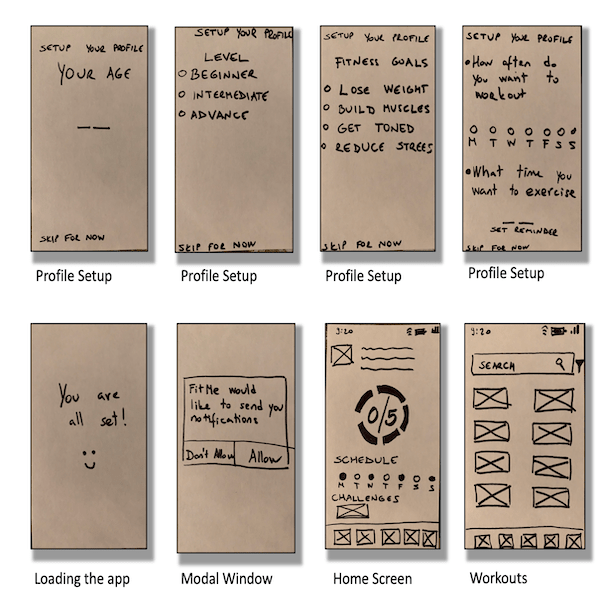 SETUP YOUR PROFILE
YOUR AGE
SKIP FOR NOW
Profile Setup
SETUP YOUR PROFILE
LEVEL
BEGINNER
INTERMEDIATE
ADVANCE
SKIP FOR NOW
Profile Setup
SETUP YOUR PROFILE
FITNESS GOALS
LOSE WEIGHT
BUILD MUSCLES
GET TONED
REDUCE STREES
SKIP FOR NOW
Profile Setup
SETUP YOUR PROFILE
How often do
you want to
workout
M T W T F S S
What time you
want to exercise
SET REMINDER
SKIP FOR NOW
Profile Setup
You are
all set!
Loading the app
FitMe would
like to send you
notifications
Don't Allow Allow
Modal Window
9:20
0/5
SCHEDULE
M T W T F S S
CHALLENGES
Home Screen
9:20
SEARCH
Workouts